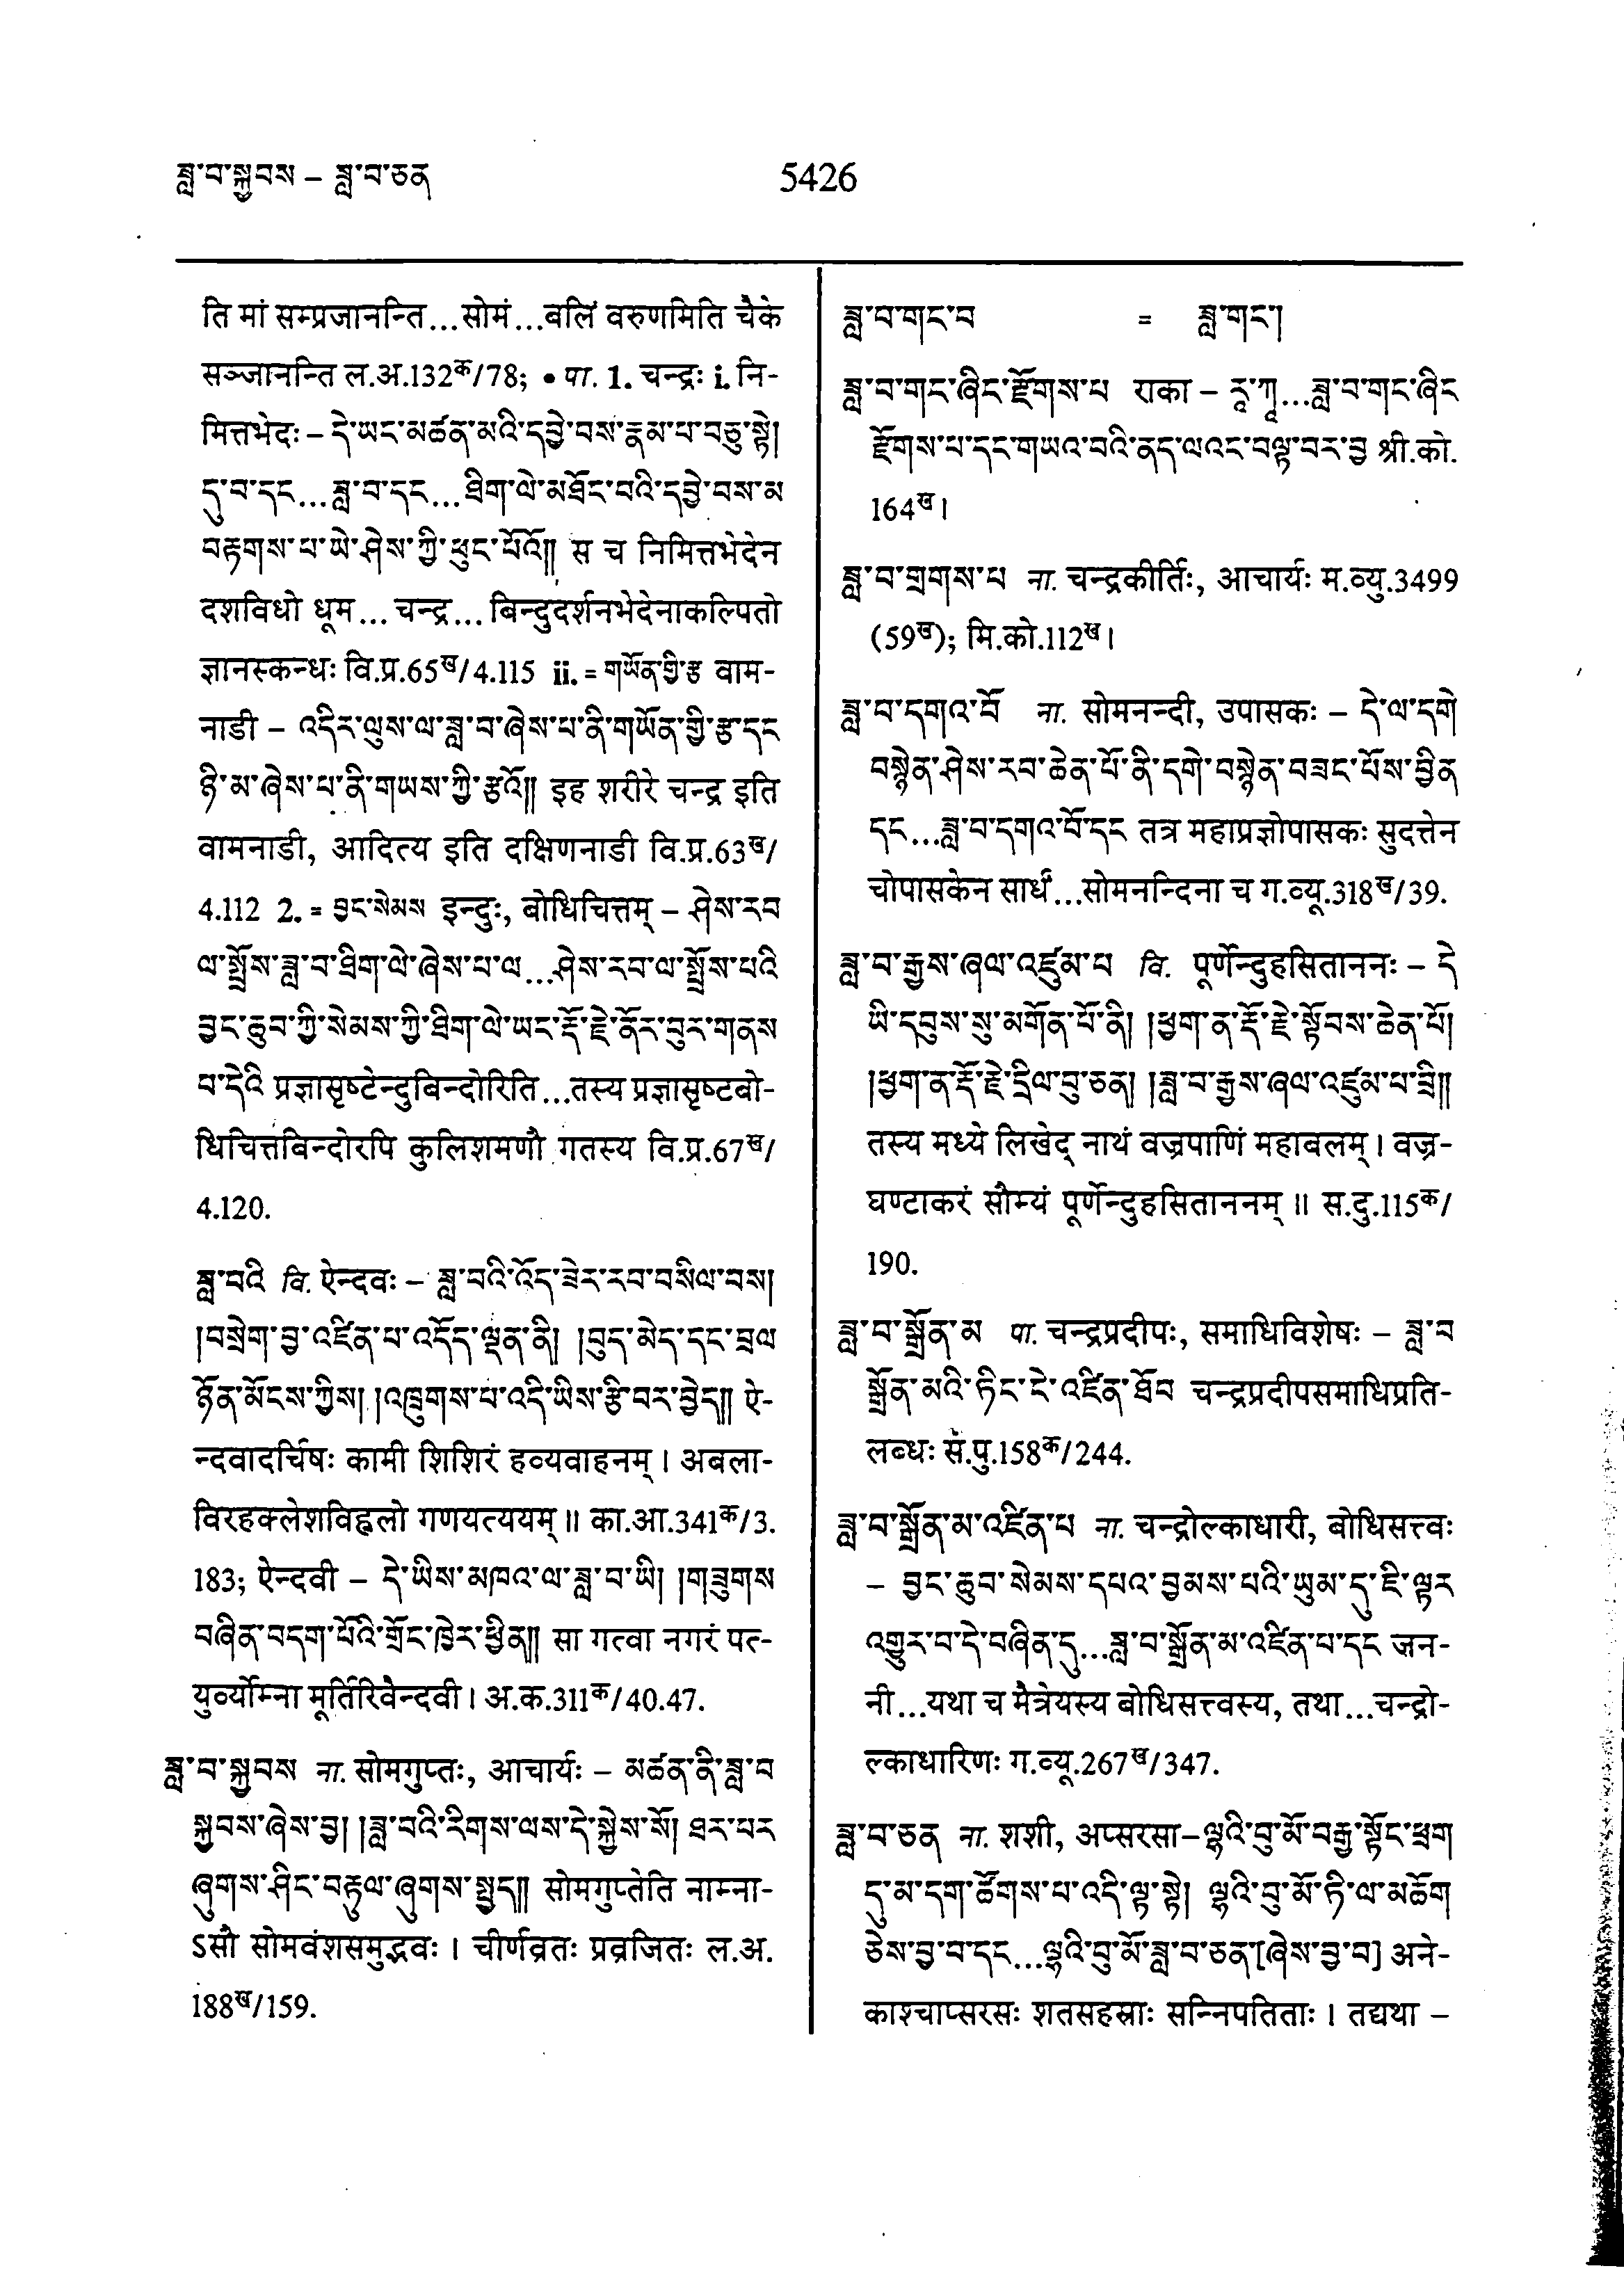 ཟླ་བ་སྐྱབས – ཟླ་བ་ཅན
5426
ति मां सम्प्रजानन्ति...सोमं...बलिं वरुणमिति चैके
सञ्जानन्ति ल.अ.132क/78; • पा. 1. चन्द्रः i. नि-
मित्तभेदः – དེ་ཡང་མཚན་མའི་དབྱེ་བས་རྣམ་པ་བཅུ་སྟེ།
དུ་བ་དང...ཟླ་བ་དང...ཐིག་ལེ་མཐོང་བའི་དབྱེ་བས་མ
བརྟགས་པ་ཡེ་ཤེས་ཀྱི་ཕུང་པོའོ།། स च निमित्तभेदेन
दशविधो धूम...चन्द्र...बिन्दुदर्शनभेदेनाकल्पितो
ज्ञानस्कन्धः वि.प्र.65ख/4.115 ii. = གཡོན་གྱི་རྩ वाम-
नाडी – འདིར་ལུས་ལ་ཟླ་བ་ཞེས་པ་ནི་གཡོན་གྱི་རྩ་དང
ཉི་མ་ཞེས་པ་ནི་གཡས་ཀྱི་རྩའོ།། इह शरीरे चन्द्र इति
वामनाडी, आदित्य इति दक्षिणनाडी वि.प्र.63ख/
4.112 2. = བྱང་སེམས इन्दुः, बोधिचित्तम् – ཤེས་རབ
ལ་སྤྲོས་ཟླ་བ་ཐིག་ལེ་ཞེས་པ་ལ...ཤེས་རབ་ལ་སྤྲོས་པའི
བྱང་ཆུབ་ཀྱི་སེམས་ཀྱི་ཐིག་ལེ་ཡང་རྡོ་རྗེ་ནོར་བུར་གནས
པ་དེའི प्रज्ञासृष्टेन्दुबिन्दोरिति...तस्य प्रज्ञासृष्टबो-
धिचित्तबिन्दोरपि कुलिशमणौ गतस्य वि.प्र.67ख/
4.120.
ཟླ་བའི वि. ऐन्दवः – ཟླ་བའི་འོད་ཟེར་རབ་བསིལ་བས།
།བསྲེག་བྱ་འཛིན་པ་འདོད་ལྡན་ནི། །བུད་མེད་དང་བྲལ
ཉོན་མོངས་ཀྱིས། །འཁྲུགས་པ་འདི་ཡིས་རྩི་བར་བྱེད།། ऐ-
न्दवादर्चिषः कामी शिशिरं हव्यवाहनम् । अबला-
विरहक्लेशविह्वलो गणयत्ययम् ॥ का.आ.341क/3.
183; ऐन्दवी – དེ་ཡིས་མཁའ་ལ་ཟླ་བ་ཡི། །གཟུགས
བཞིན་བདག་པོའི་གྲོང་ཁྱེར་ཕྱིན།། सा गत्वा नगरं पत्-
युर्व्योम्ना मूर्तिरिवैन्दवी । अ.क.311क/40.47.
ཟླ་བ་སྐྱབས ना. सोमगुप्तः, आचार्यः – མཚན་ནི་ཟླ་བ
སྐྱབས་ཞེས་བྱ། །ཟླ་བའི་རིགས་ལས་དེ་སྐྱེས་སོ། ཐར་པར
ཞུགས་ཤིང་བརྟུལ་ཞུགས་སྤྱད།། सोमगुप्तेति नाम्ना-
ऽसौ सोमवंशसमुद्भवः । चीर्णव्रतः प्रव्रजितः ल.अ.
188ख/159.
ཟླ་བ་གང་བ = ཟླ་གང་།
ཟླ་བ་གང་ཞིང་རྫོགས་པ राका – རཱ་ཀཱ...ཟླ་བ་གང་ཞིང
རྫོགས་པ་དང་གཡའ་བའི་ནད་ལའང་བལྟ་བར་བྱ श्री.को.
164ख ।
ཟླ་བ་གྲགས་པ ना. चन्द्रकीर्तिः, आचार्यः म.व्यु.3499
(59ख); मि.को.112ख ।
ཟླ་བ་དགའ་བོ ना. सोमनन्दी, उपासकः – དེ་ལ་དགེ
བསྙེན་ཤེས་རབ་ཆེན་པོ་ནི་དགེ་བསྙེན་བཟང་པོས་བྱིན
དང...ཟླ་བ་དགའ་བོ་དང तत्र महाप्रज्ञोपासकः सुदत्तेन
चोपासकेन सार्धं...सोमनन्दिना च ग.व्यू.318ख/39.
ཟླ་བ་རྒྱས་ཞལ་འཛུམ་པ वि. पूर्णेन्दुहसिताननः – དེ
ཡི་དབུས་སུ་མགོན་པོ་ནི། །ཕྱག་ན་རྡོ་རྗེ་སྟོབས་ཆེན་པོ།
།ཕྱག་ན་རྡོ་རྗེ་དྲིལ་བུ་ཅན། །ཟླ་བ་རྒྱས་ཞལ་འཛུམ་པ་བྲི།།
तस्य मध्ये लिखेद् नाथं वज्रपाणिं महाबलम् । वज्र-
घण्टाकरं सौम्यं पूर्णेन्दुहसिताननम् ॥ स.दु.115क/
190.
ཟླ་བ་སྒྲོན་མ पा. चन्द्रप्रदीपः, समाधिविशेषः – ཟླ་བ
སྒྲོན་མའི་ཏིང་ངེ་འཛིན་ཐོབ चन्द्रप्रदीपसमाधिप्रति-
लब्धः सं.पु.158क/244.
ཟླ་བ་སྒྲོན་མ་འཛིན་པ ना. चन्द्रोल्काधारी, बोधिसत्त्वः
– བྱང་ཆུབ་སེམས་དཔའ་བྱམས་པའི་ཡུམ་དུ་ཇི་ལྟར
འགྱུར་བ་དེ་བཞིན་དུ...ཟླ་བ་སྒྲོན་མ་འཛིན་པ་དང जन-
नी...यथा च मैत्रेयस्य बोधिसत्त्वस्य, तथा...चन्द्रो-
ल्काधारिणः ग.व्यू.267ख/347.
ཟླ་བ་ཅན ना. शशी, अप्सरसा – ལྷའི་བུ་མོ་བརྒྱ་སྟོང་ཕྲག
དུ་མ་དག་ཚོགས་པ་འདི་ལྟ་སྟེ། ལྷའི་བུ་མོ་ཏི་ལ་མཆོག
ཅེས་བྱ་བ་དང...ལྷའི་བུ་མོ་ཟླ་བ་ཅན་[ཞེས་བྱ་བ] अने-
काश्चाप्सरसः शतसहस्राः सन्निपतिताः । तद्यथा –